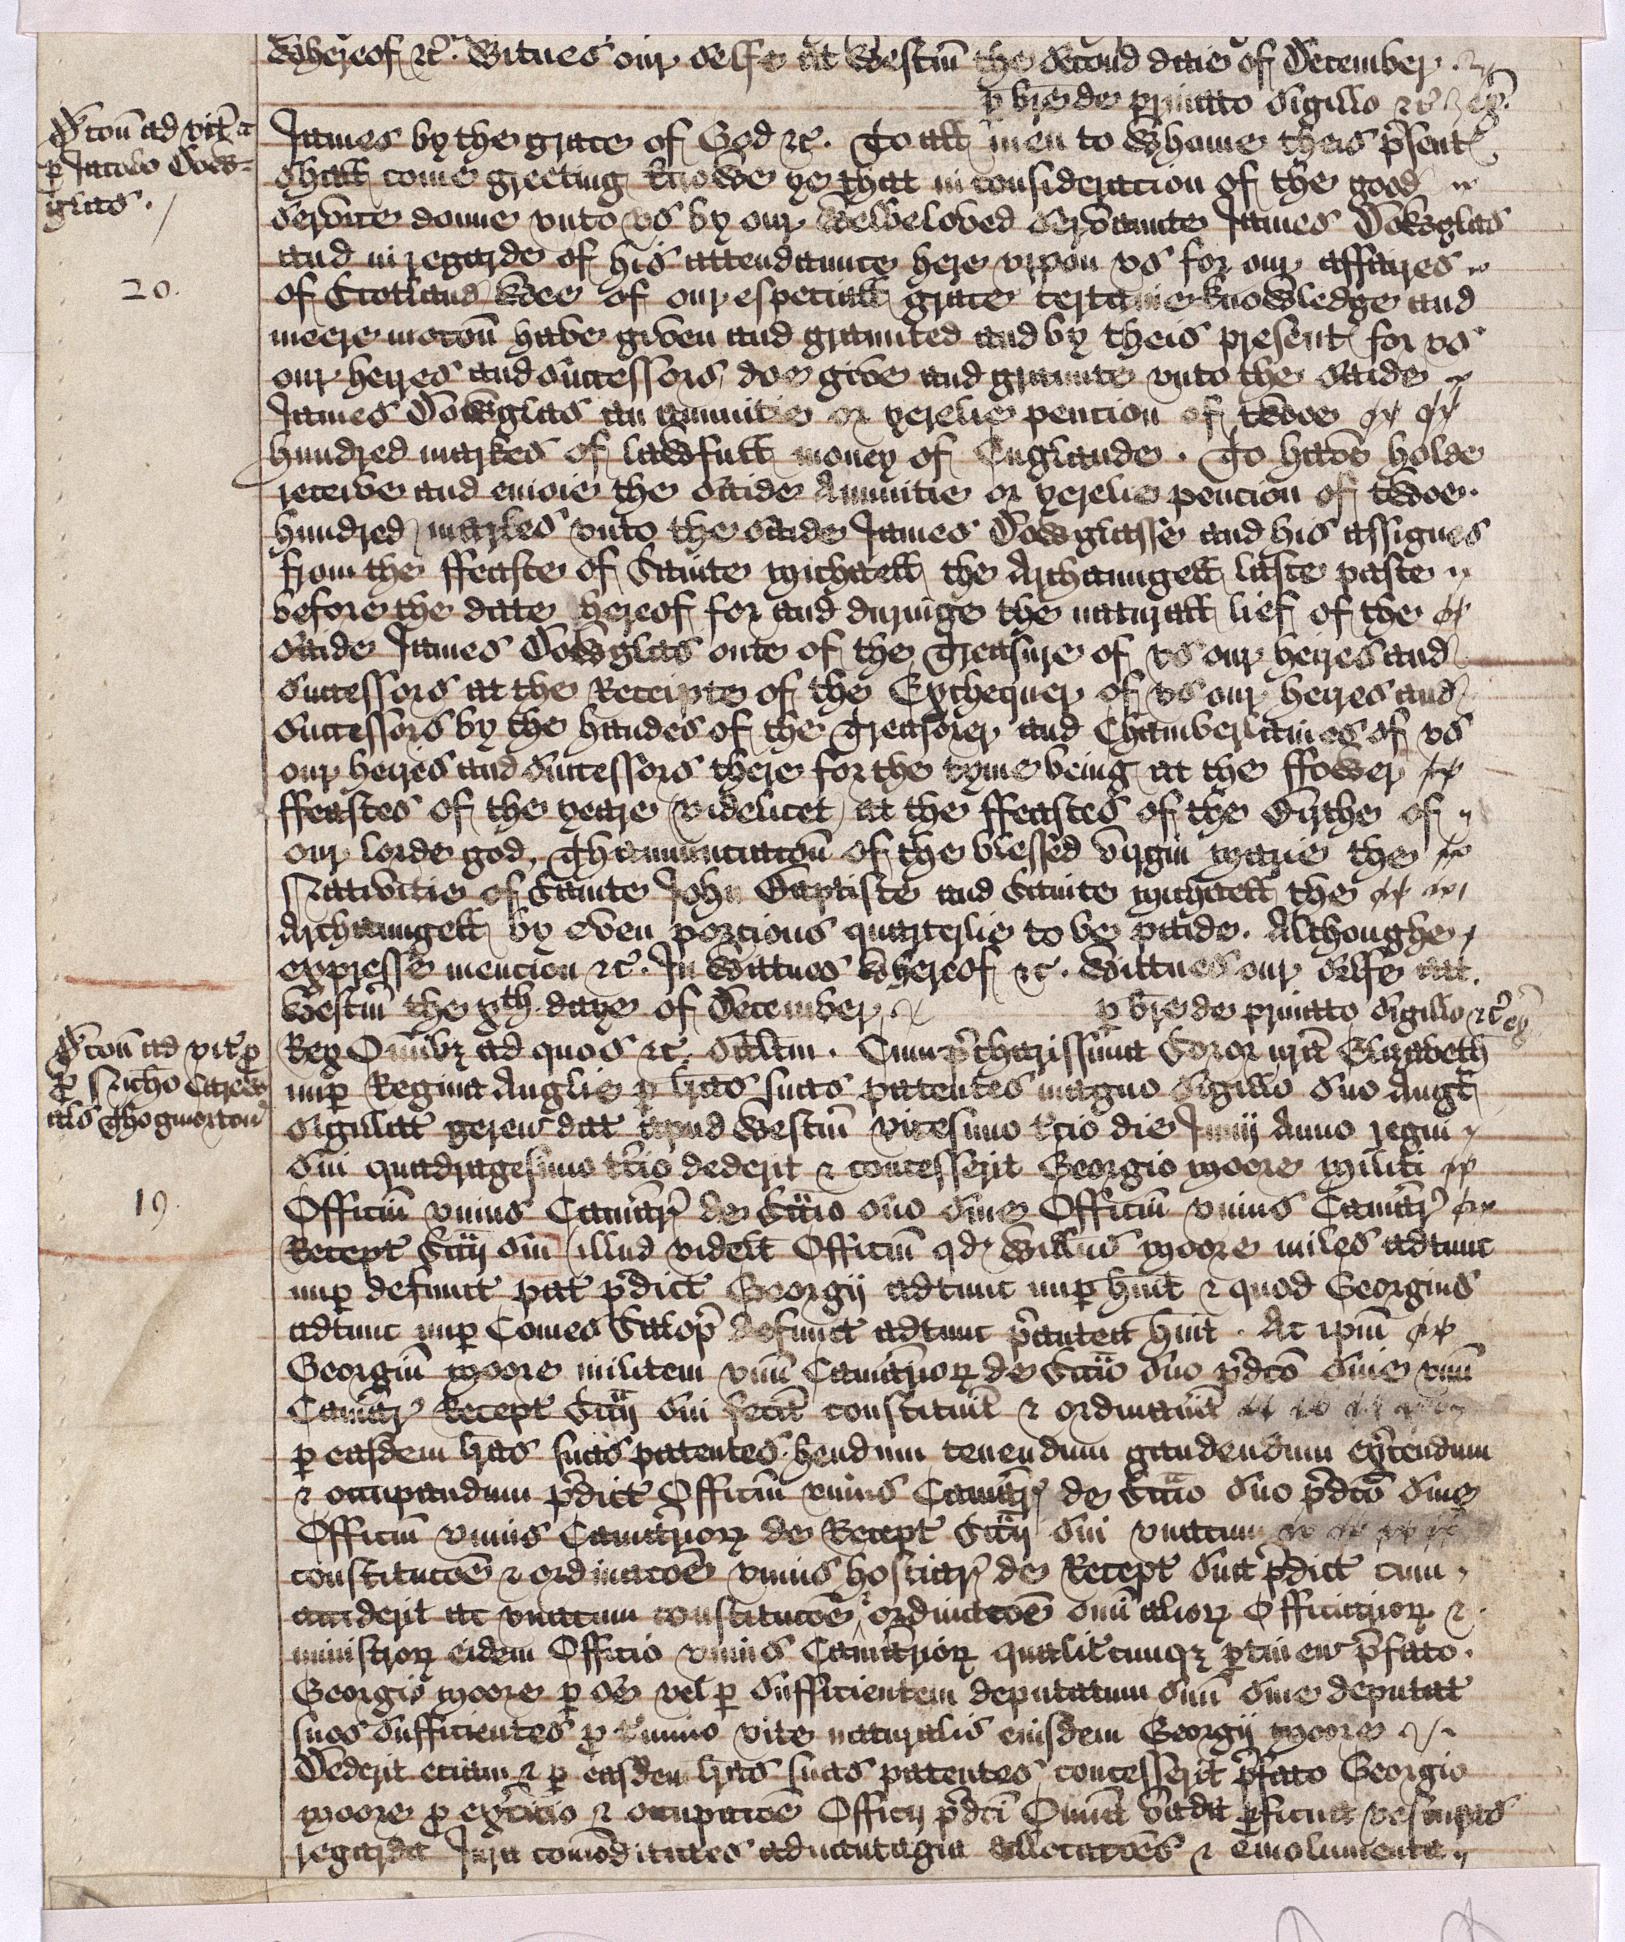 whereof &c. Witnes our selfe at Westm̄ the second daie of December
p̱ br̄e de privato sigillo &c
D con̄ ad vit̄ a
p̱ Jacobo Dow-
glas.
20.
James by the grace of God &c. To all men to whome theis p̄sent
shall come greeting knowe ye that in consideracion of the good
service donne vnto vs by our welbeloved servante James Dowglas
and in regarde of his attendaunce here vppon vs for our affayres
of Scotland Wee of our especiall grace certaine knowledge and
meere moc̄on have given and graunted and by theis present for vs
our heyres and successors doe give and graunte vnto the saide
James Dowglas an annuitie or yerelie pencion of twoe
hundred markes of lawfull money of Englande. To have holde
receive and enioie the saide Annuitie or yerelie pencion of twoe
hundred markes vnto the saide James Dowglasse and his assignes
from the ffeaste of Sainte Michaell the Archaungell laste paste
before the date hereof for and duringe the naturall lief of the
saide James Dowglas oute of the Treasure of vs our heyres and
successors at the Receipte of the Exchequer of vs our heyres and
successors by the handes of the Treasorer and Chamberlaines of vs
our heyres and successors there for the tyme being at the ffower
ffeastes of the yeare videlicet at the ffeastes of the Birthe of
our lorde god, Thannunciac̄on of the blessed virgin Marie the
Nativitie of Sainte John Baptiste and Sainte Michaell the
Archaungell by even porcions quarterlie to be paide. Althoughe
expresse mencion &c. In Wittnes whereof &c. Wittnes our selfe att
Westm̄ the xth daye of December
p̱ br̄e de privato sigillo &c
D con̄ ad vit̄ p̱
p̱ Nich̄o Carew
al̄s Throgmorton
19.
Rex Omībȝ ad quos &c. sal̄tm. Cum p̄charissima Soror nr̄a Elizabeth
nup̱ Regina Anglie p̱ l̄ras suas patentes magno sigillo suo Angl̄
sigillat̄ geren̄ dat̄ apud Westm̄ vicesimo t̄cio die Junij Anno regni
sui quadragesimo t̄cio dederit & concesserit Georgio Moore militi
Officiū vnius Cam̄ar̄ de Sc̄cio suo sive Officiū vnius Cam̄ar̄
Recept̄ Sc̄cij sui illud videl̄t Officiū qd̄ Will̄us Moore miles adtunc
nup̱ defunct̄ pat̄ p̄dict̄ Georgij adtunc nup̱ h̄uit & quod Georgius
adtunc nup̱ Comes Salop̄ defunct̄ adtunc p̄antea h̄uit. Ac ip̄m
Georgiū Moore militem vnū Cam̄arioꝝ de Sc̄cio suo p̄dc̄o sive vnū
Cam̄ar̄ Recept̄ Sc̄cij sui fec̄it constituit & ordinavit
p̱ easdem l̄ras suas patentes. h̄endum tenendum gaudendum ex̄cendum
& occupandum p̄dict̄ Officiū vnius Cam̄ar̄ de Sc̄cio suo p̄dc̄o sive
Officiū vnius Cam̄arioꝝ de Recept̄ Sc̄cij sui vnacum
constituc̄oe & ordinac̄oe vnius hostiar̄ de Recept̄ sua p̄dict̄ cum
acciderit ac vnacum constituc̄oe & ordinac̄oe omī alioꝝ Officiarioꝝ &
ministroꝝ eidem Officio vnius Cam̄arioꝝ qualit̄cunqȝ p̱tinen̄ p̄fato
Georgio Moore p̱ se vel p̱ sufficientem deputatum suū sive deputat̄
suos sufficientes p̱ t̄mino vite naturalis eiusdem Georgij Moore
Dederit etiam & p̱ easdem l̄ras suas patentes concesserit p̄fato Georgio
Moore p̱ ex̄cicio & occupac̄oe Officij p̄dc̄i Omīa vada p̱ficua
regarda Jura com̄oditates advantagia allocac̄oes & emolumenta